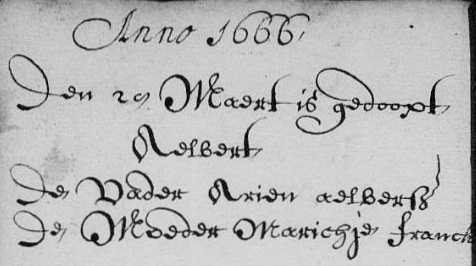 Anno 1666
Den 29 Maert is gedoopt
Aelbert
De Vader Arien aelberss
De Moeder Marichje franck